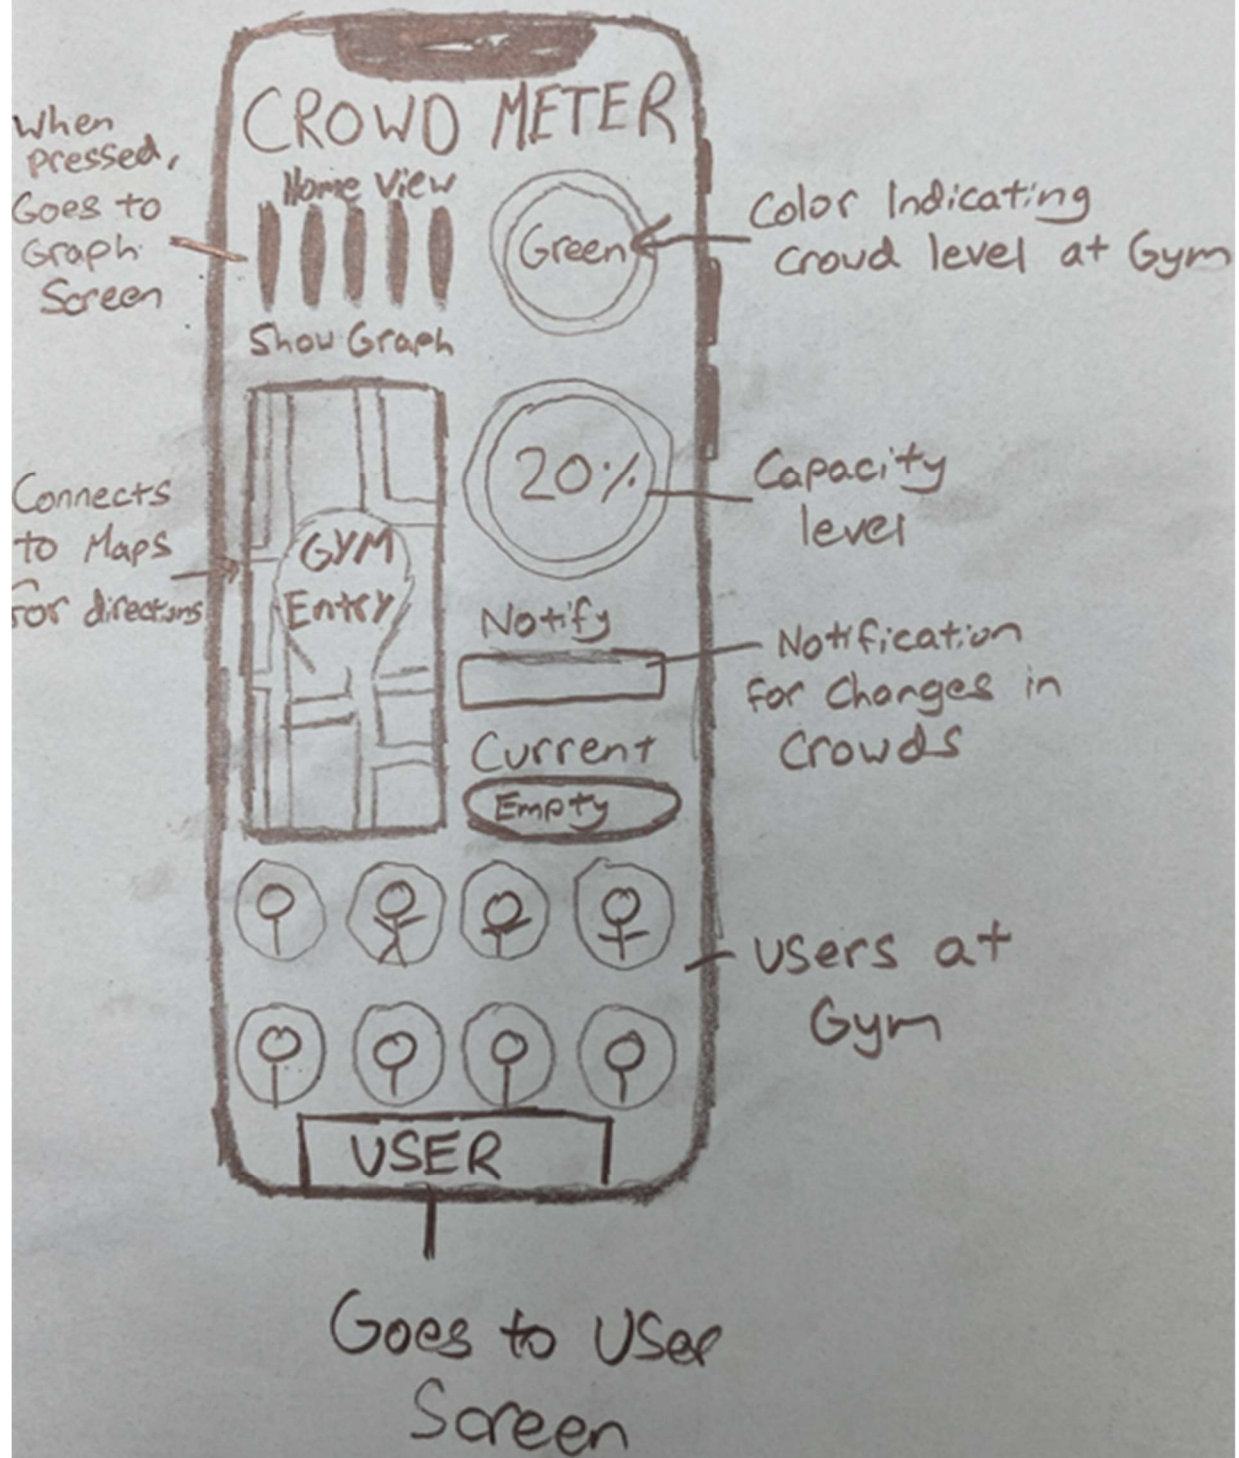 CROWD METER
When
pressed,
Goes to
Graph
Screen
Home View
Show Graph
Green
Color Indicating
Croud level at Gym
Connects
to Maps
For directions
GYM
Entry
20%
Capacity
level
Notify
Notification
for Changes in
Crowds
Current
Empty
Users at
Gym
USER
Goes to User
Screen